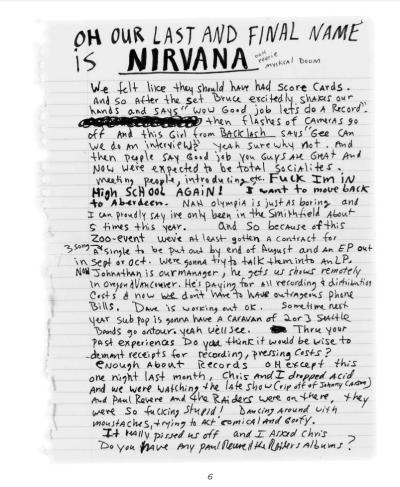 OH OUR LAST AND FINAL NAME
iS NIRVANA ooh eerie mystical DOOM
We felt like they should have had score cards.
And so After the set Bruce excitedly shakes our
hands and SAYS "wow Good job lets do A Record".
then flashes of cameras go
off And this Girl from BackLash SAYS "Gee CAN
we do An interview? yeah sure why not. And
then people SAy Good job you Guys Are Great And
Now were expected to be total socialites.
meeting people, introducing etc. Fuck I'm IN
High SCHOOL AGAiN! I want to move back
to Aberdeen. NAH olympia is just As boring and
I can proudly say ive only been in the Smithfield About
5 times this year. And So because of this
Zoo-event weve At least gotten A contract for
3 song A single to be put out by end of August and an EP out
in sept or oct. Were gonna try to talk them into An LP.
Now Johnathan is our manager, he gets us shows remotely
in oregon & Vancouver. He's paying for All recording & distribution
costs & now we don't have to have outrageous phone
Bills. Dave is working out ok. Sometime next
year Sub pop is gonna have A CARAVAN of 2 or 3 Seattle
Bands go on tour. yeah we'll see. Thru your
past experiences Do you think it would be wise to
demand receipts for recording, pressing costs?
enough About Records OH except this
one night last month, Chris and I dropped Acid
And we were watching the late show (rip off of Johnny Carson)
And Paul Revere and the RAiders were on there, they
were so fucking stupid! Dancing around with
moustaches, trying to Act comical and Goofy.
It really pissed us off and I Asked Chris
Do you have Any Paul Revere & the Raiders Albums?
6